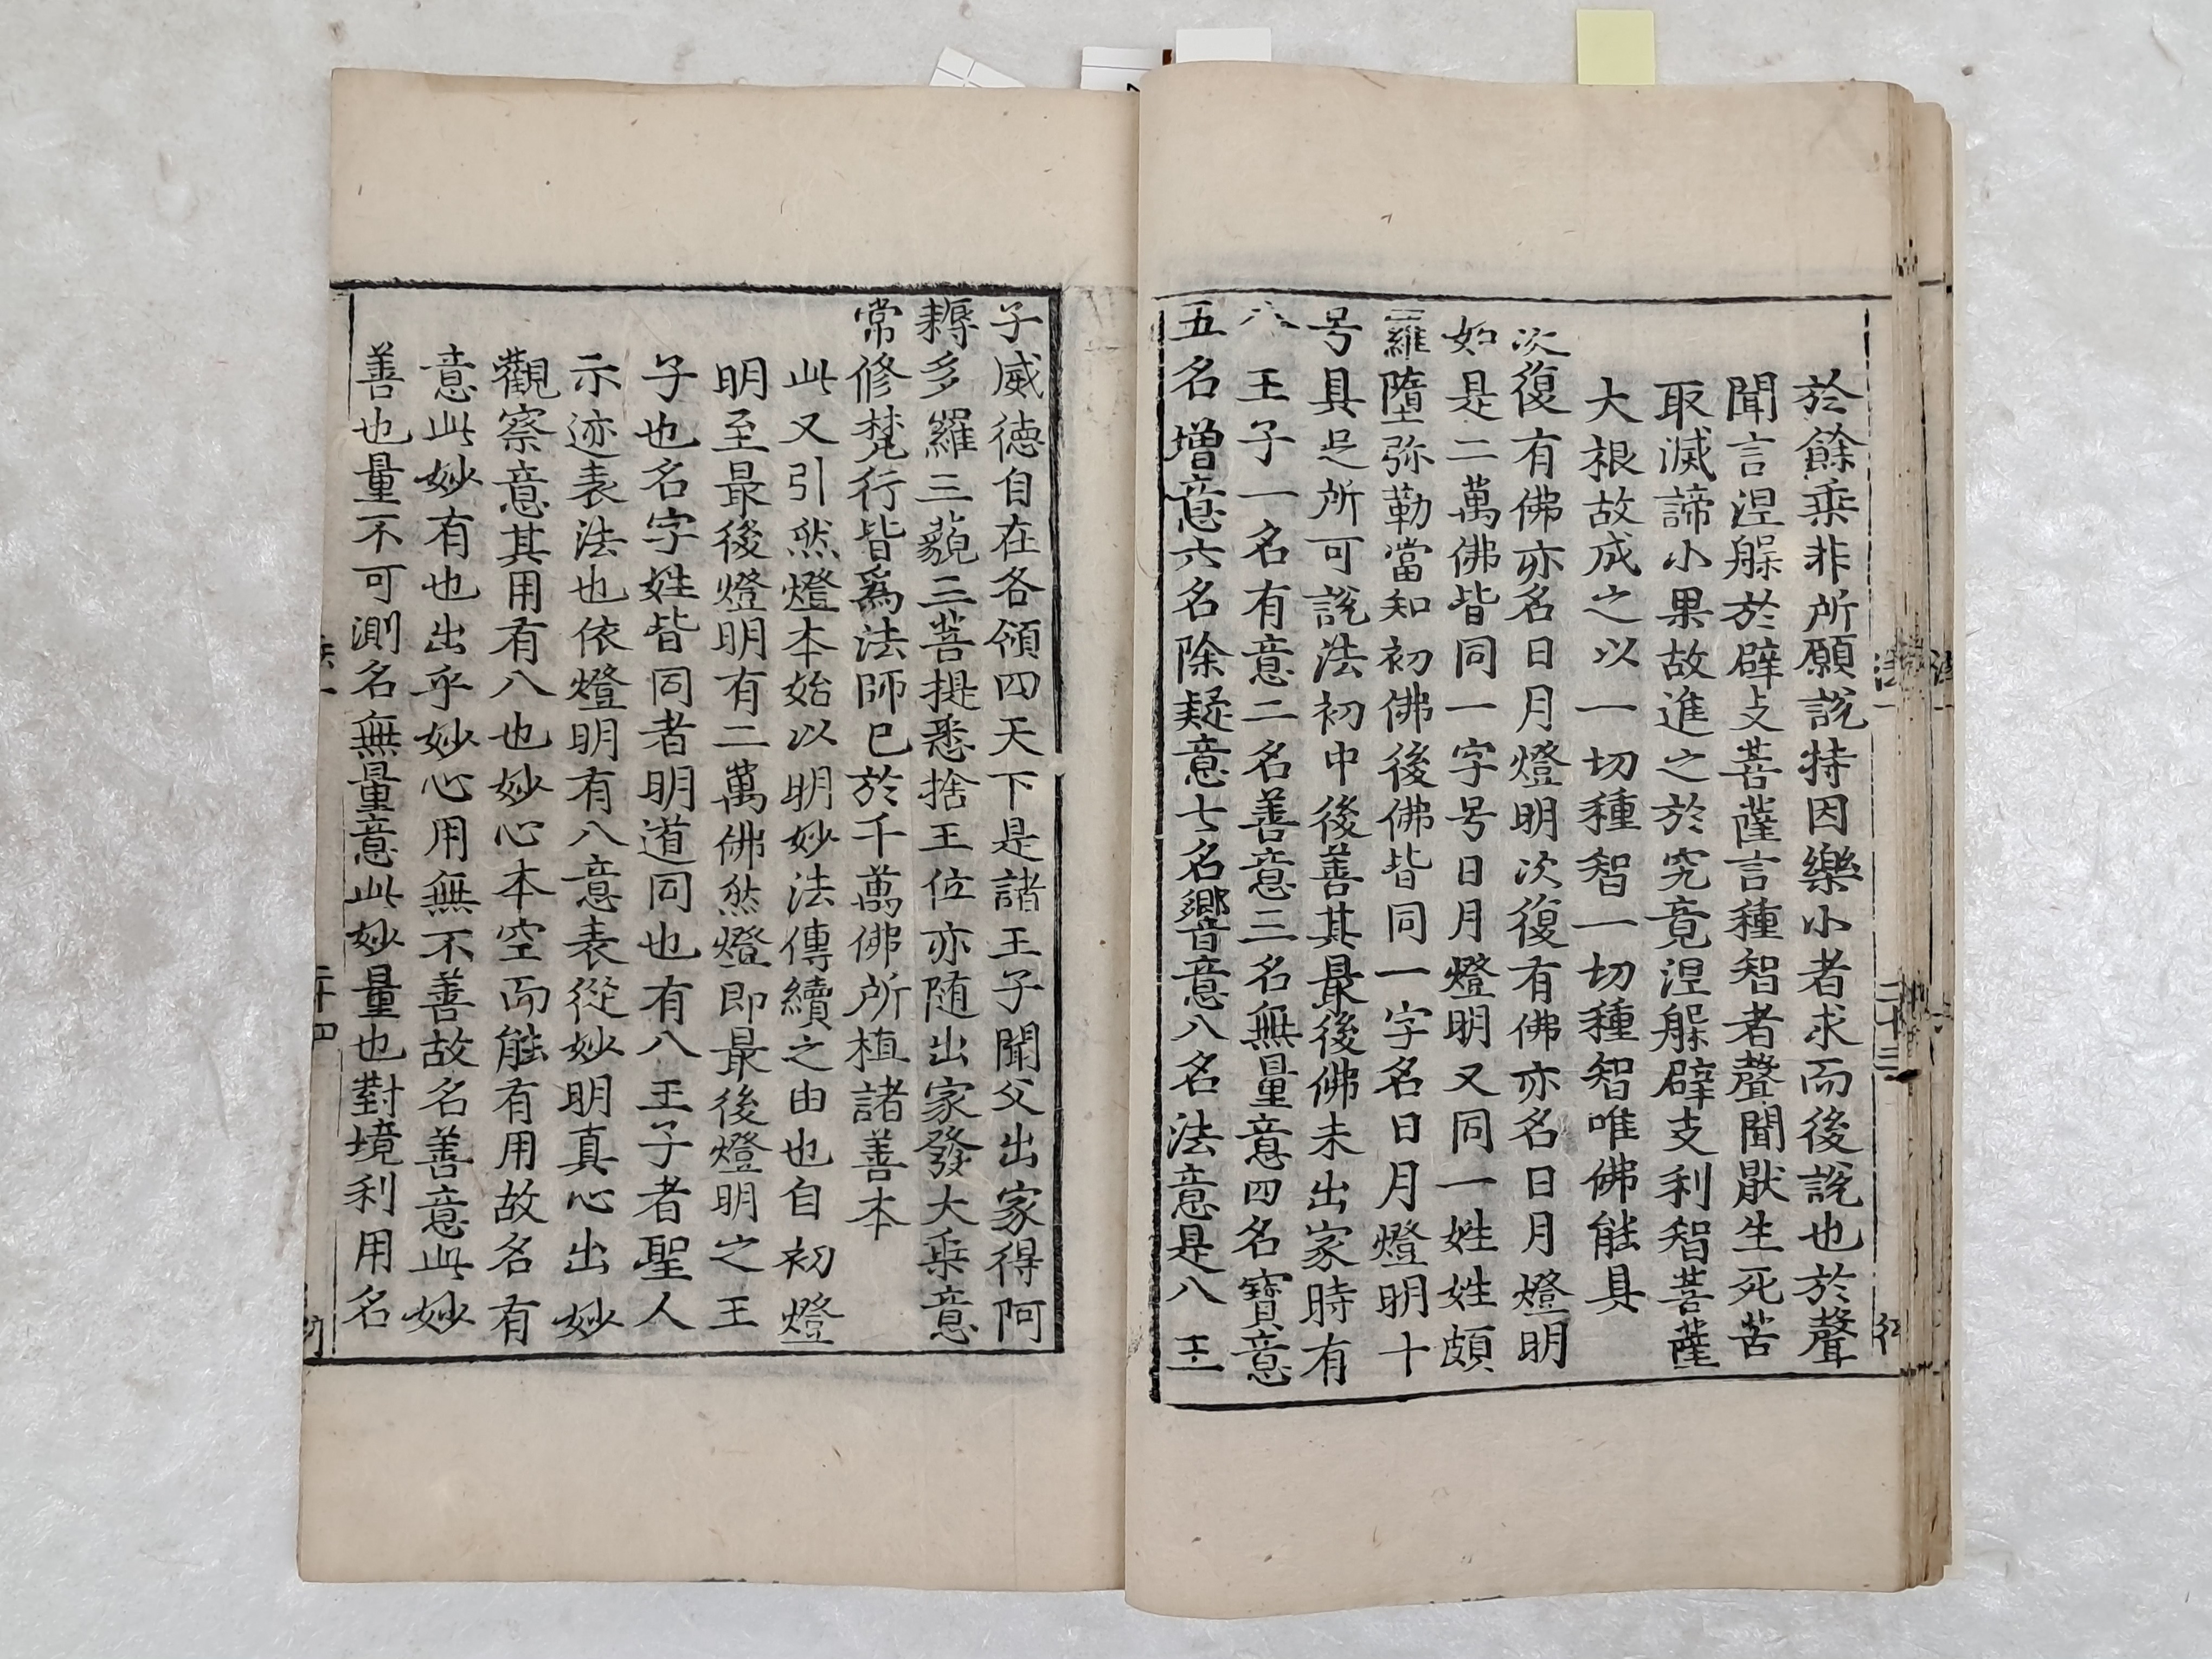 於餘乘非所願說特因樂小者求而後說也於聲
聞言涅槃於辟支菩薩言種智者聲聞猒生死苦
取滅諦小果故進之於究竟涅槃辟支利智菩薩
大根故成之以一切種智一切種智唯佛能具
次復有佛亦名日月燈明次復有佛亦名日月燈明
如是二萬佛皆同一字号日月燈明又同一姓姓頗
羅墮弥勒當知初佛後佛皆同一字名日月燈明十
号具足所可說法初中後善其最後佛未出家時有
八王子一名有意二名善意三名無量意四名寶意
五名增意六名除疑意七名響意八名法意是八王
子威德自在各領四天下是諸王子聞父出家得阿
耨多羅三藐三菩提悉捨王位亦随出家發大乘意
常修梵行皆爲法師已於千萬佛所植諸善本
此又引然燈本始以明妙法傳續之由也自初燈
明至最後燈明有二萬佛然燈即最後燈明之王
子也名字姓皆同者明道同也有八王子者聖人
示迹表法也依燈明有八意表從妙明真心出妙
觀察意其用有八也妙心本空而能有用故名有
意此妙有也出乎妙心用無不善故名善意此妙
善也量不可測名無量意此妙量也對境利用名
二十四